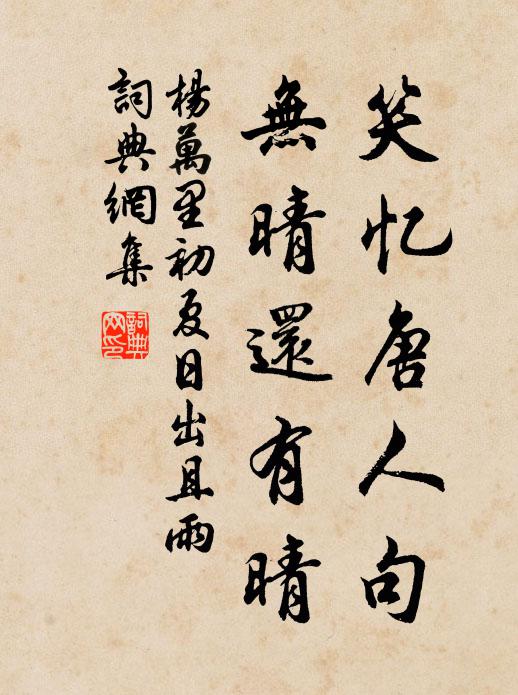 笑忆唐人句
無晴還有晴
楊萬里初夏日出且雨
詞典網集
詞典網印